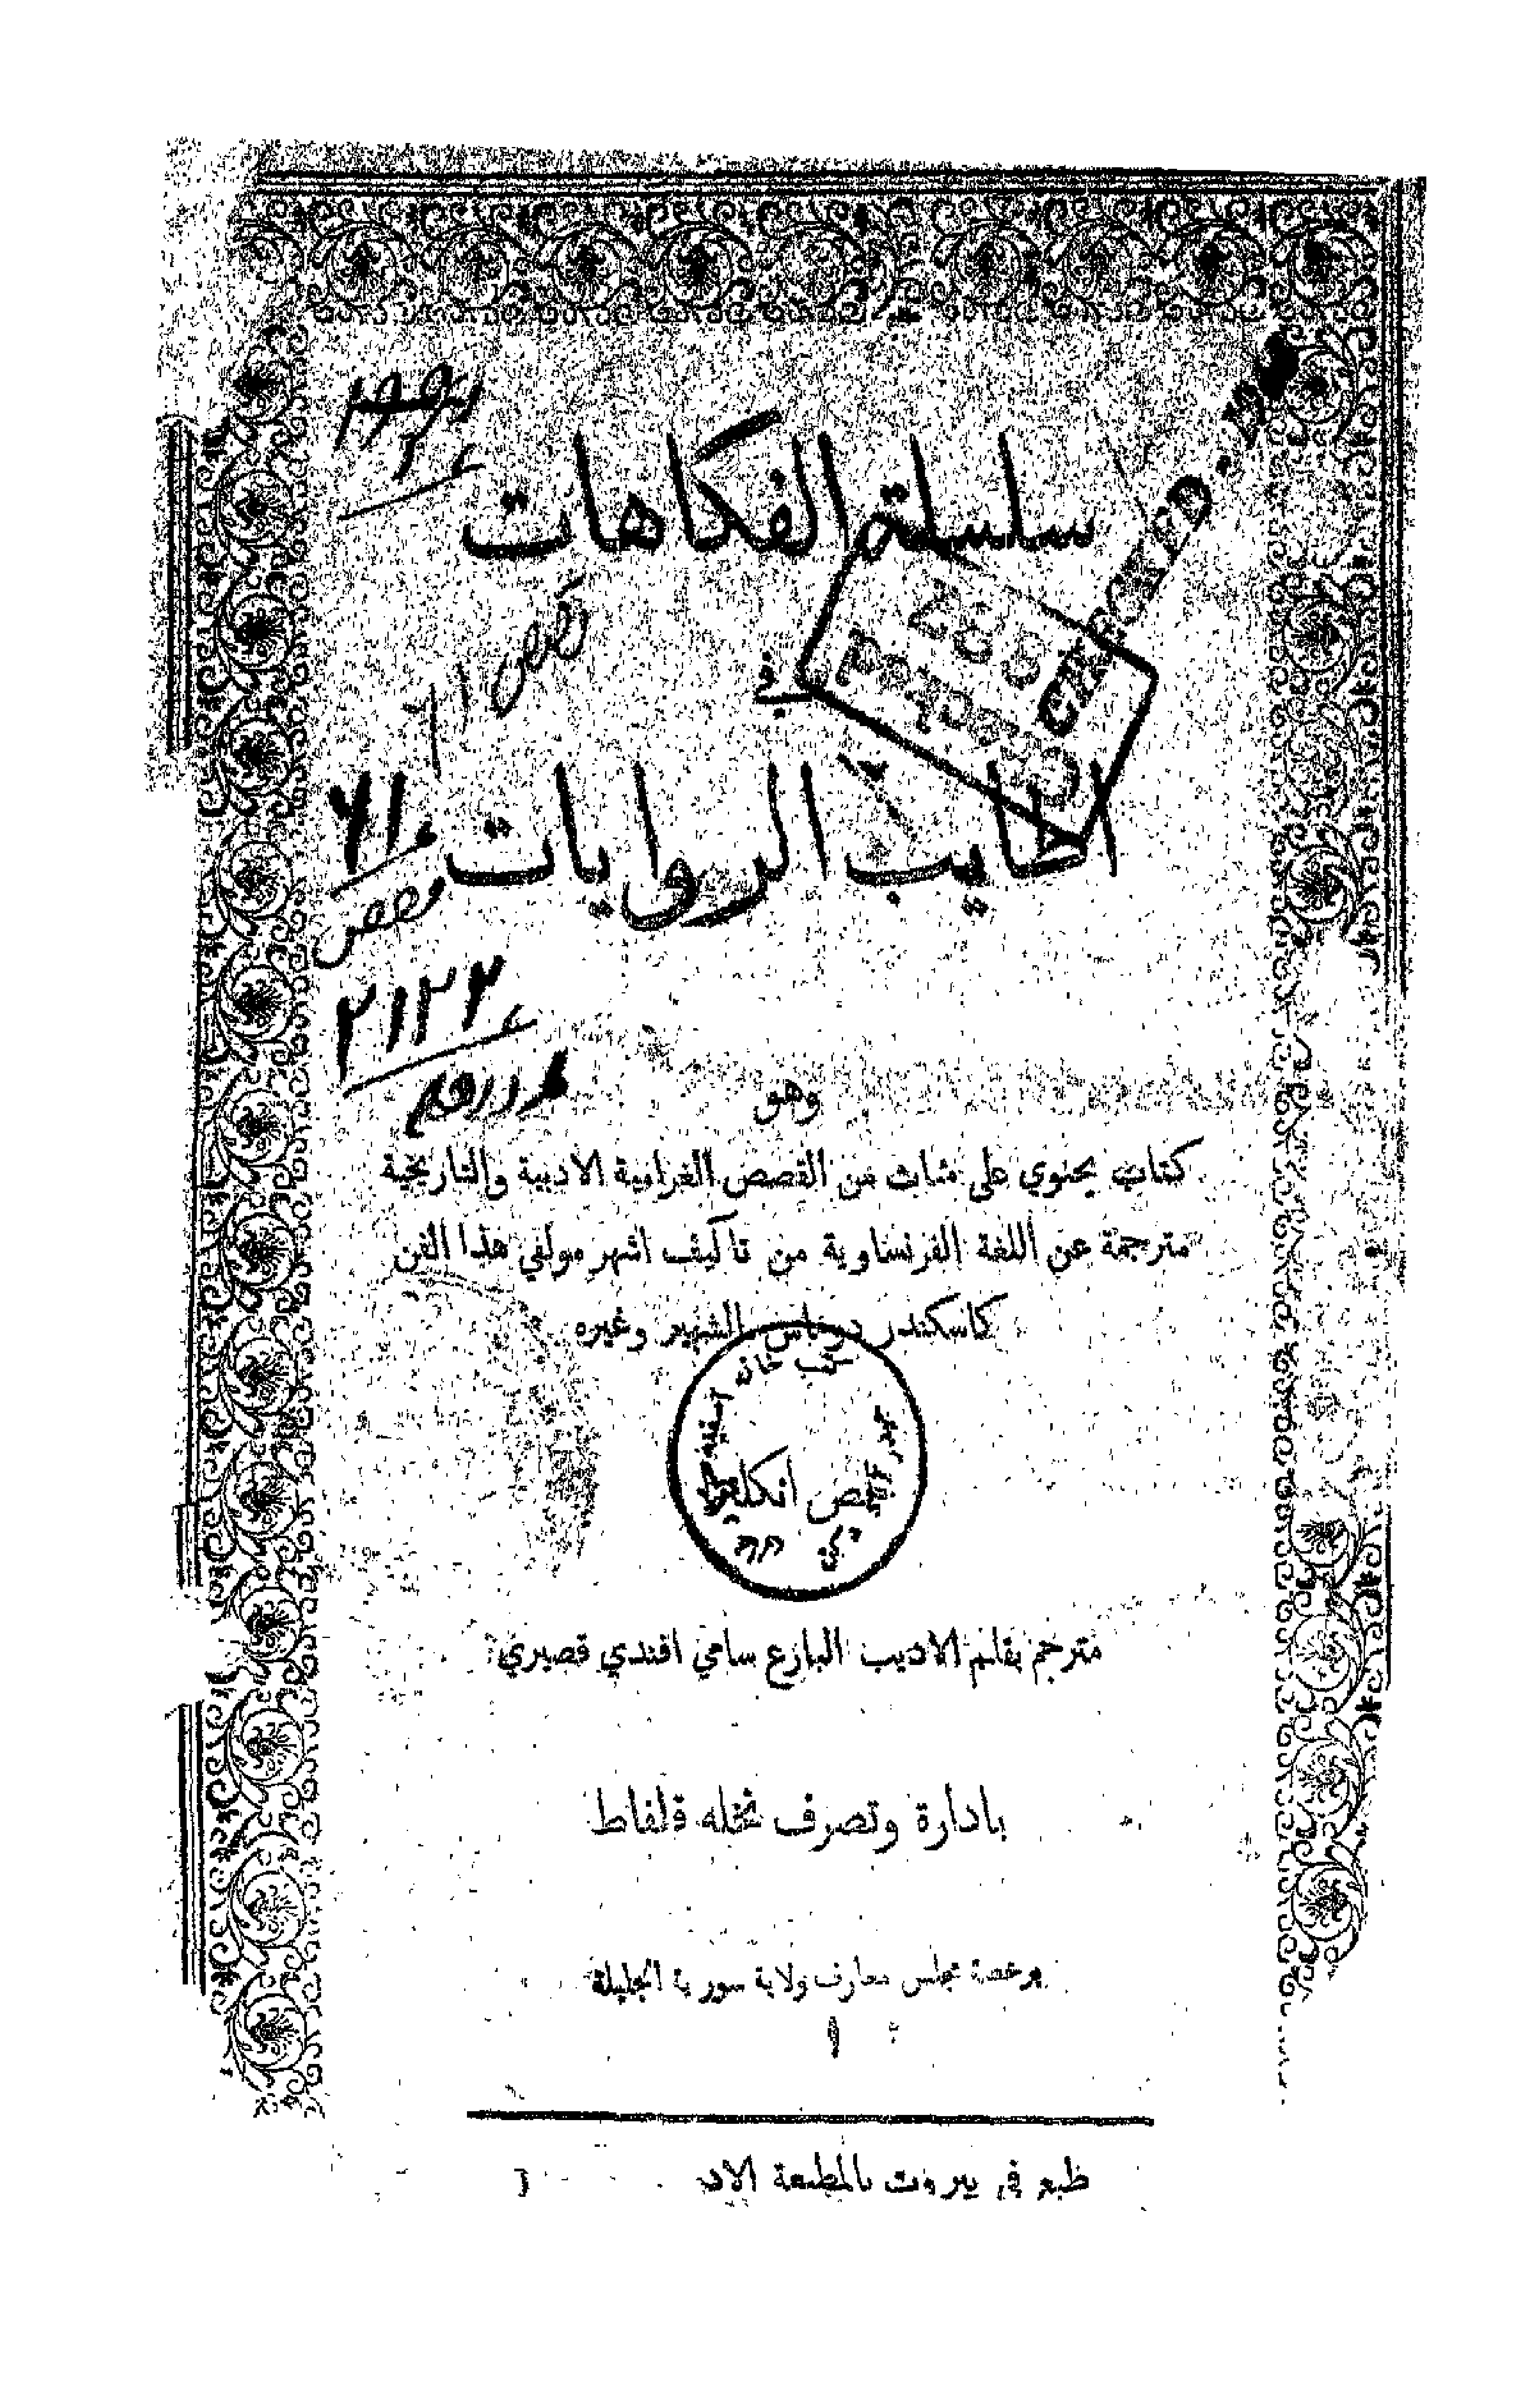 سلسلة الفكاهات
قصص
في
اطايب الروايات
٧١٠
قصص
٢١٢٣
وهو
كتاب يحتوي على مئات من القصص الغرامية الادبية والتاريخية
مترجمة عن اللغة الفرنساوية من تاكيف اشهر مولفي هذا الفن
كاسكندر دوماس الشهير وغيره
كتب خانه اصفيه
مترجم بقلم الاديب البارع سامي افندي قصيري
بادارة وتصرف نخله قلفاط
برخصة مجلس معارف ولاية سورية الجليلة
طبع في بيروت بالمطبعة الاد